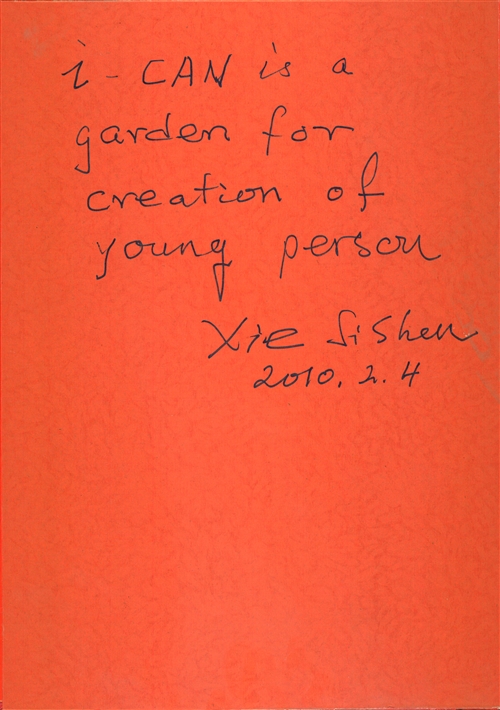 i-CAN is a
garden for
creation of
young person
Xie SiShen
2010. 2. 4